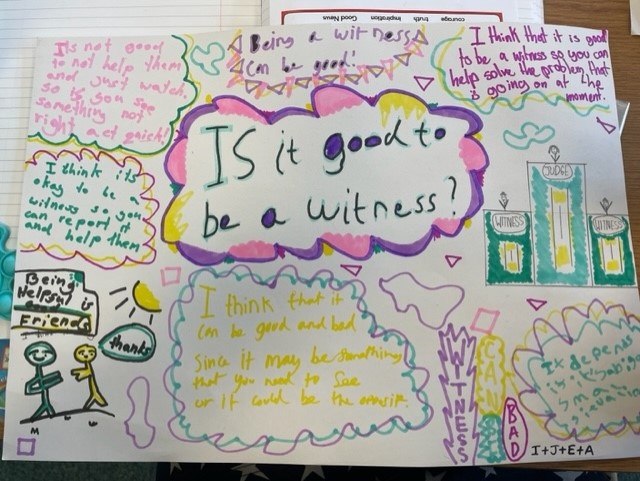 courage truth inspiration Good News
Is not good
to not help them
and just watch
so is you see
something not
right act quick!
Being a witness
Can be good!
I think that it is good
to be a witness so you can
help solve the problem that
is going on at the
moment.
IS it good to
be a witness?
I think its
okay to be a
witness so you
can report it
and help them
JUDGE
WITNESS
WITNESS
Being
Helpful is
Friends
thanks
I think that it
can be good and bad
since it may be something
that you need to see
or it could be the
WITNESS
CAN
BE
BAD
It depends
I+J+E+A